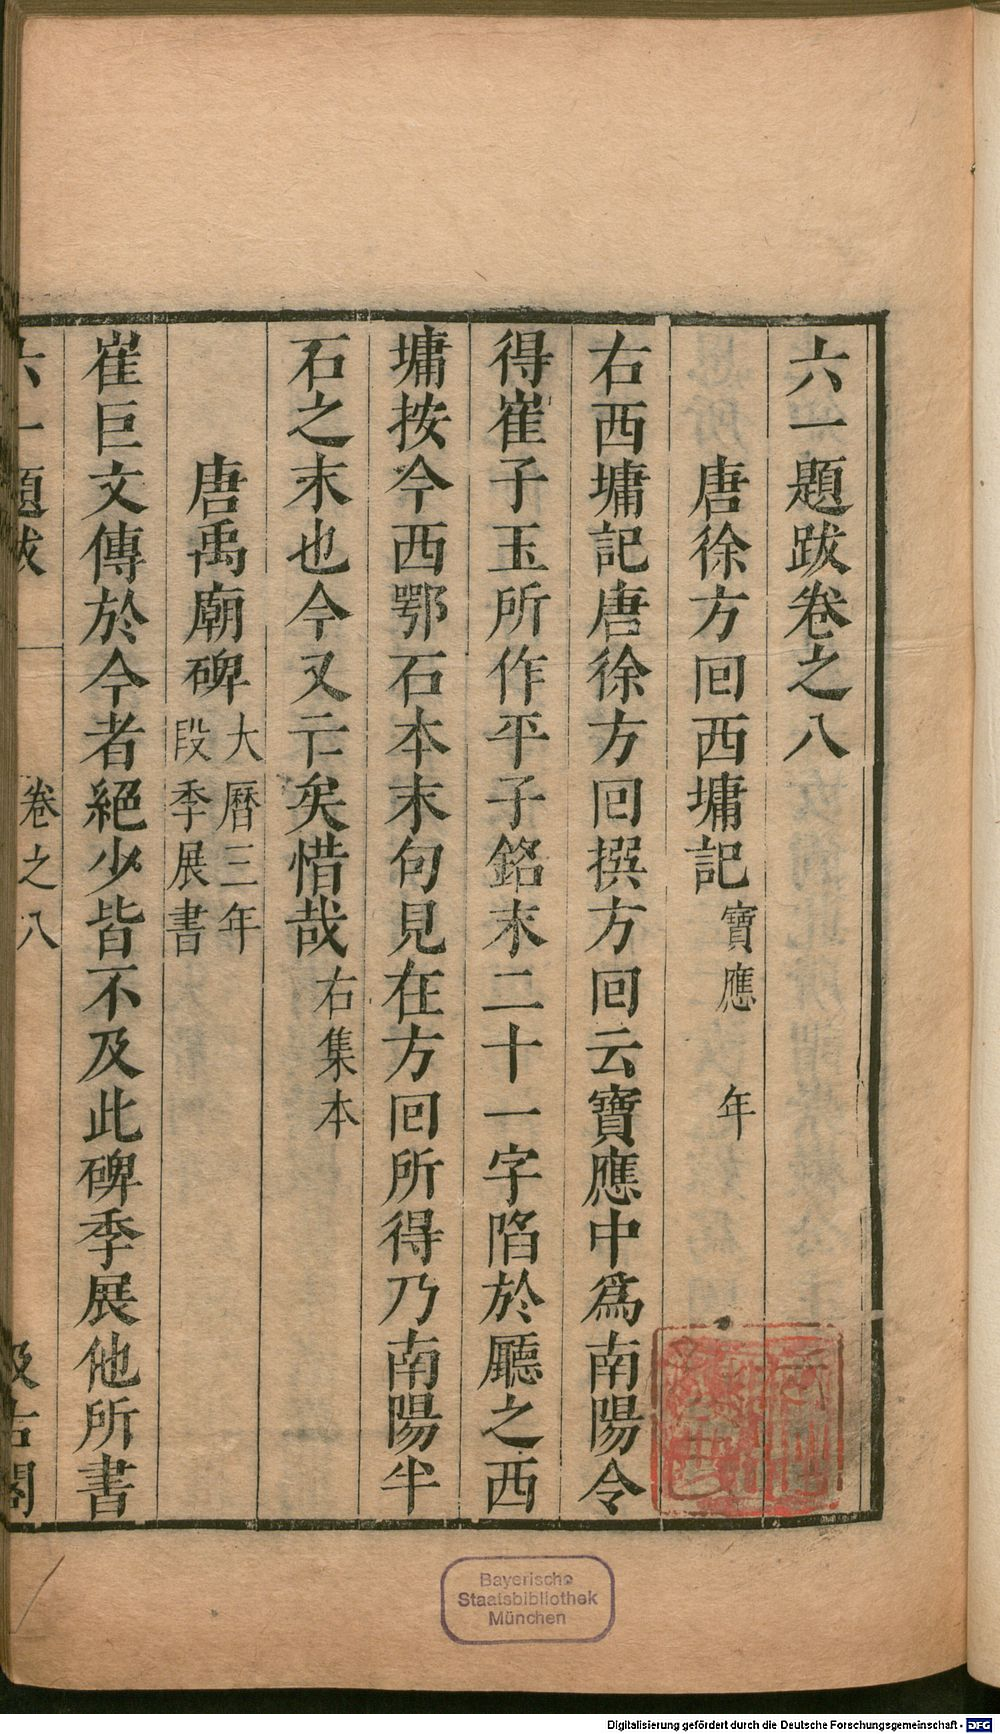 六一題跋卷之八
唐徐方回西墉記寶應 年
右西墉記唐徐方回撰方回云寶應中爲南陽令
得崔子玉所作平子銘末二十一字陷於廳之西
墉按今西鄂石本末句見在方回所得乃南陽半
石之末也今又亡矣惜哉右集本
唐禹廟碑大曆三年
段季展書
崔巨文傳於今者絕少皆不及此碑季展他所書
六一題跋 卷之八 汲古閣
Bayerische
Staatsbibliothek
München
Digitalisierung gefördert durch die Deutsche Forschungsgemeinschaft - DFG